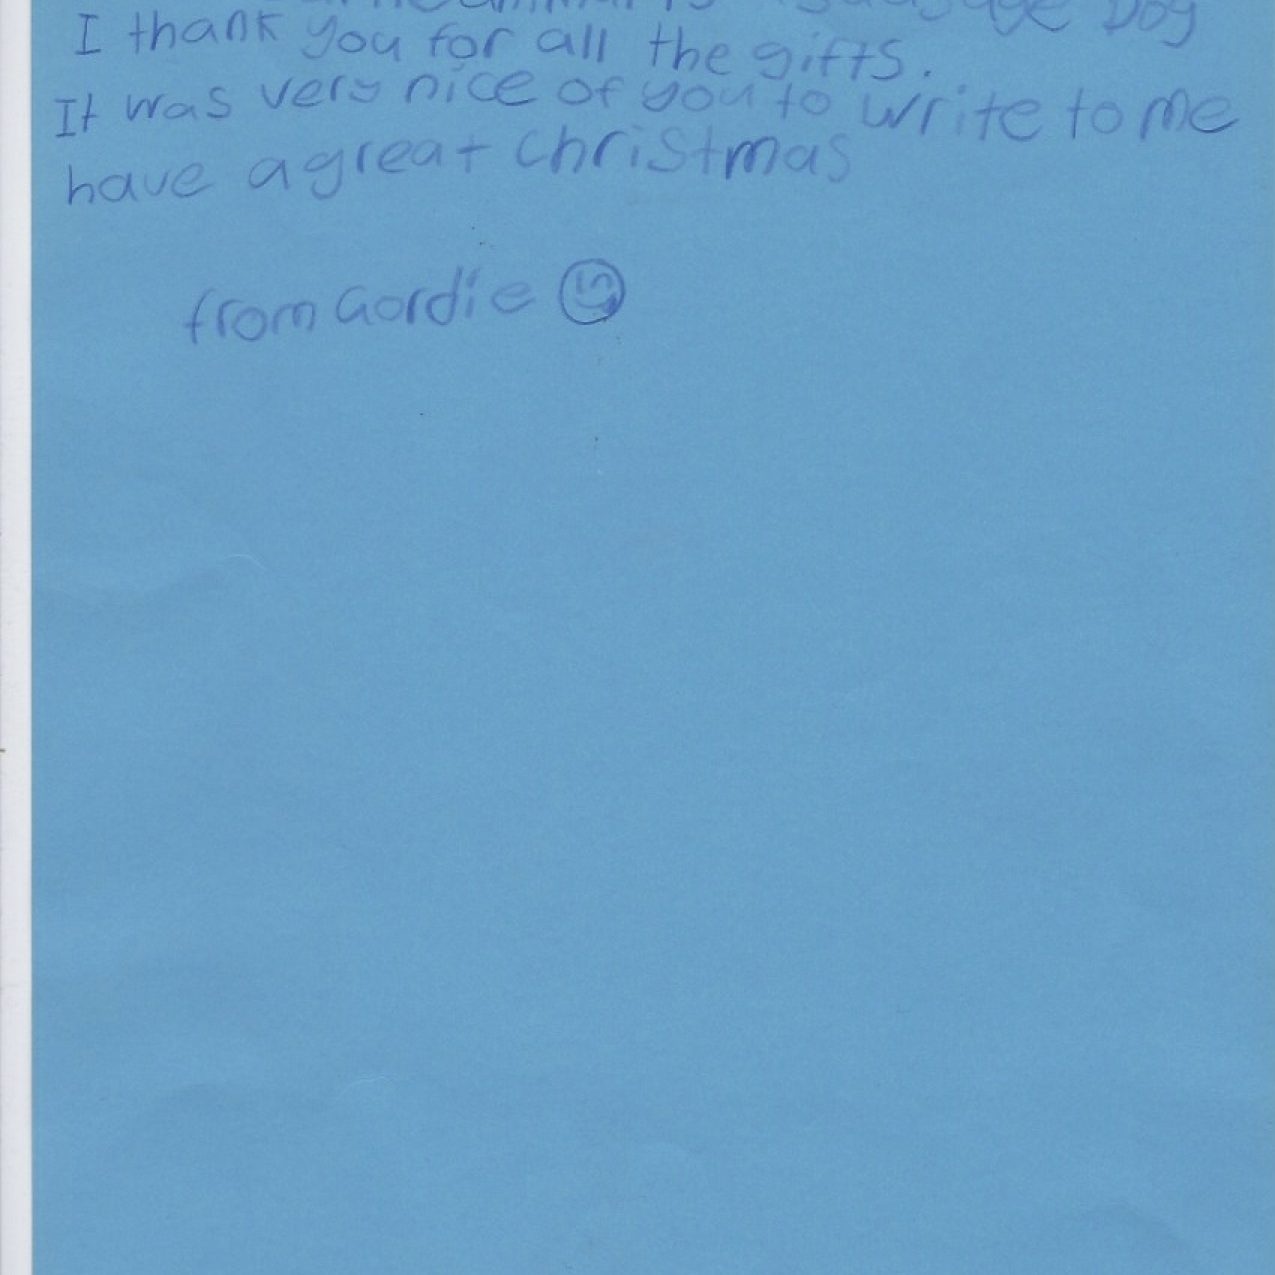 Dog
I thank you for all the gifts.
It was very nice of you to write to me
have a great christmas
from Gordie